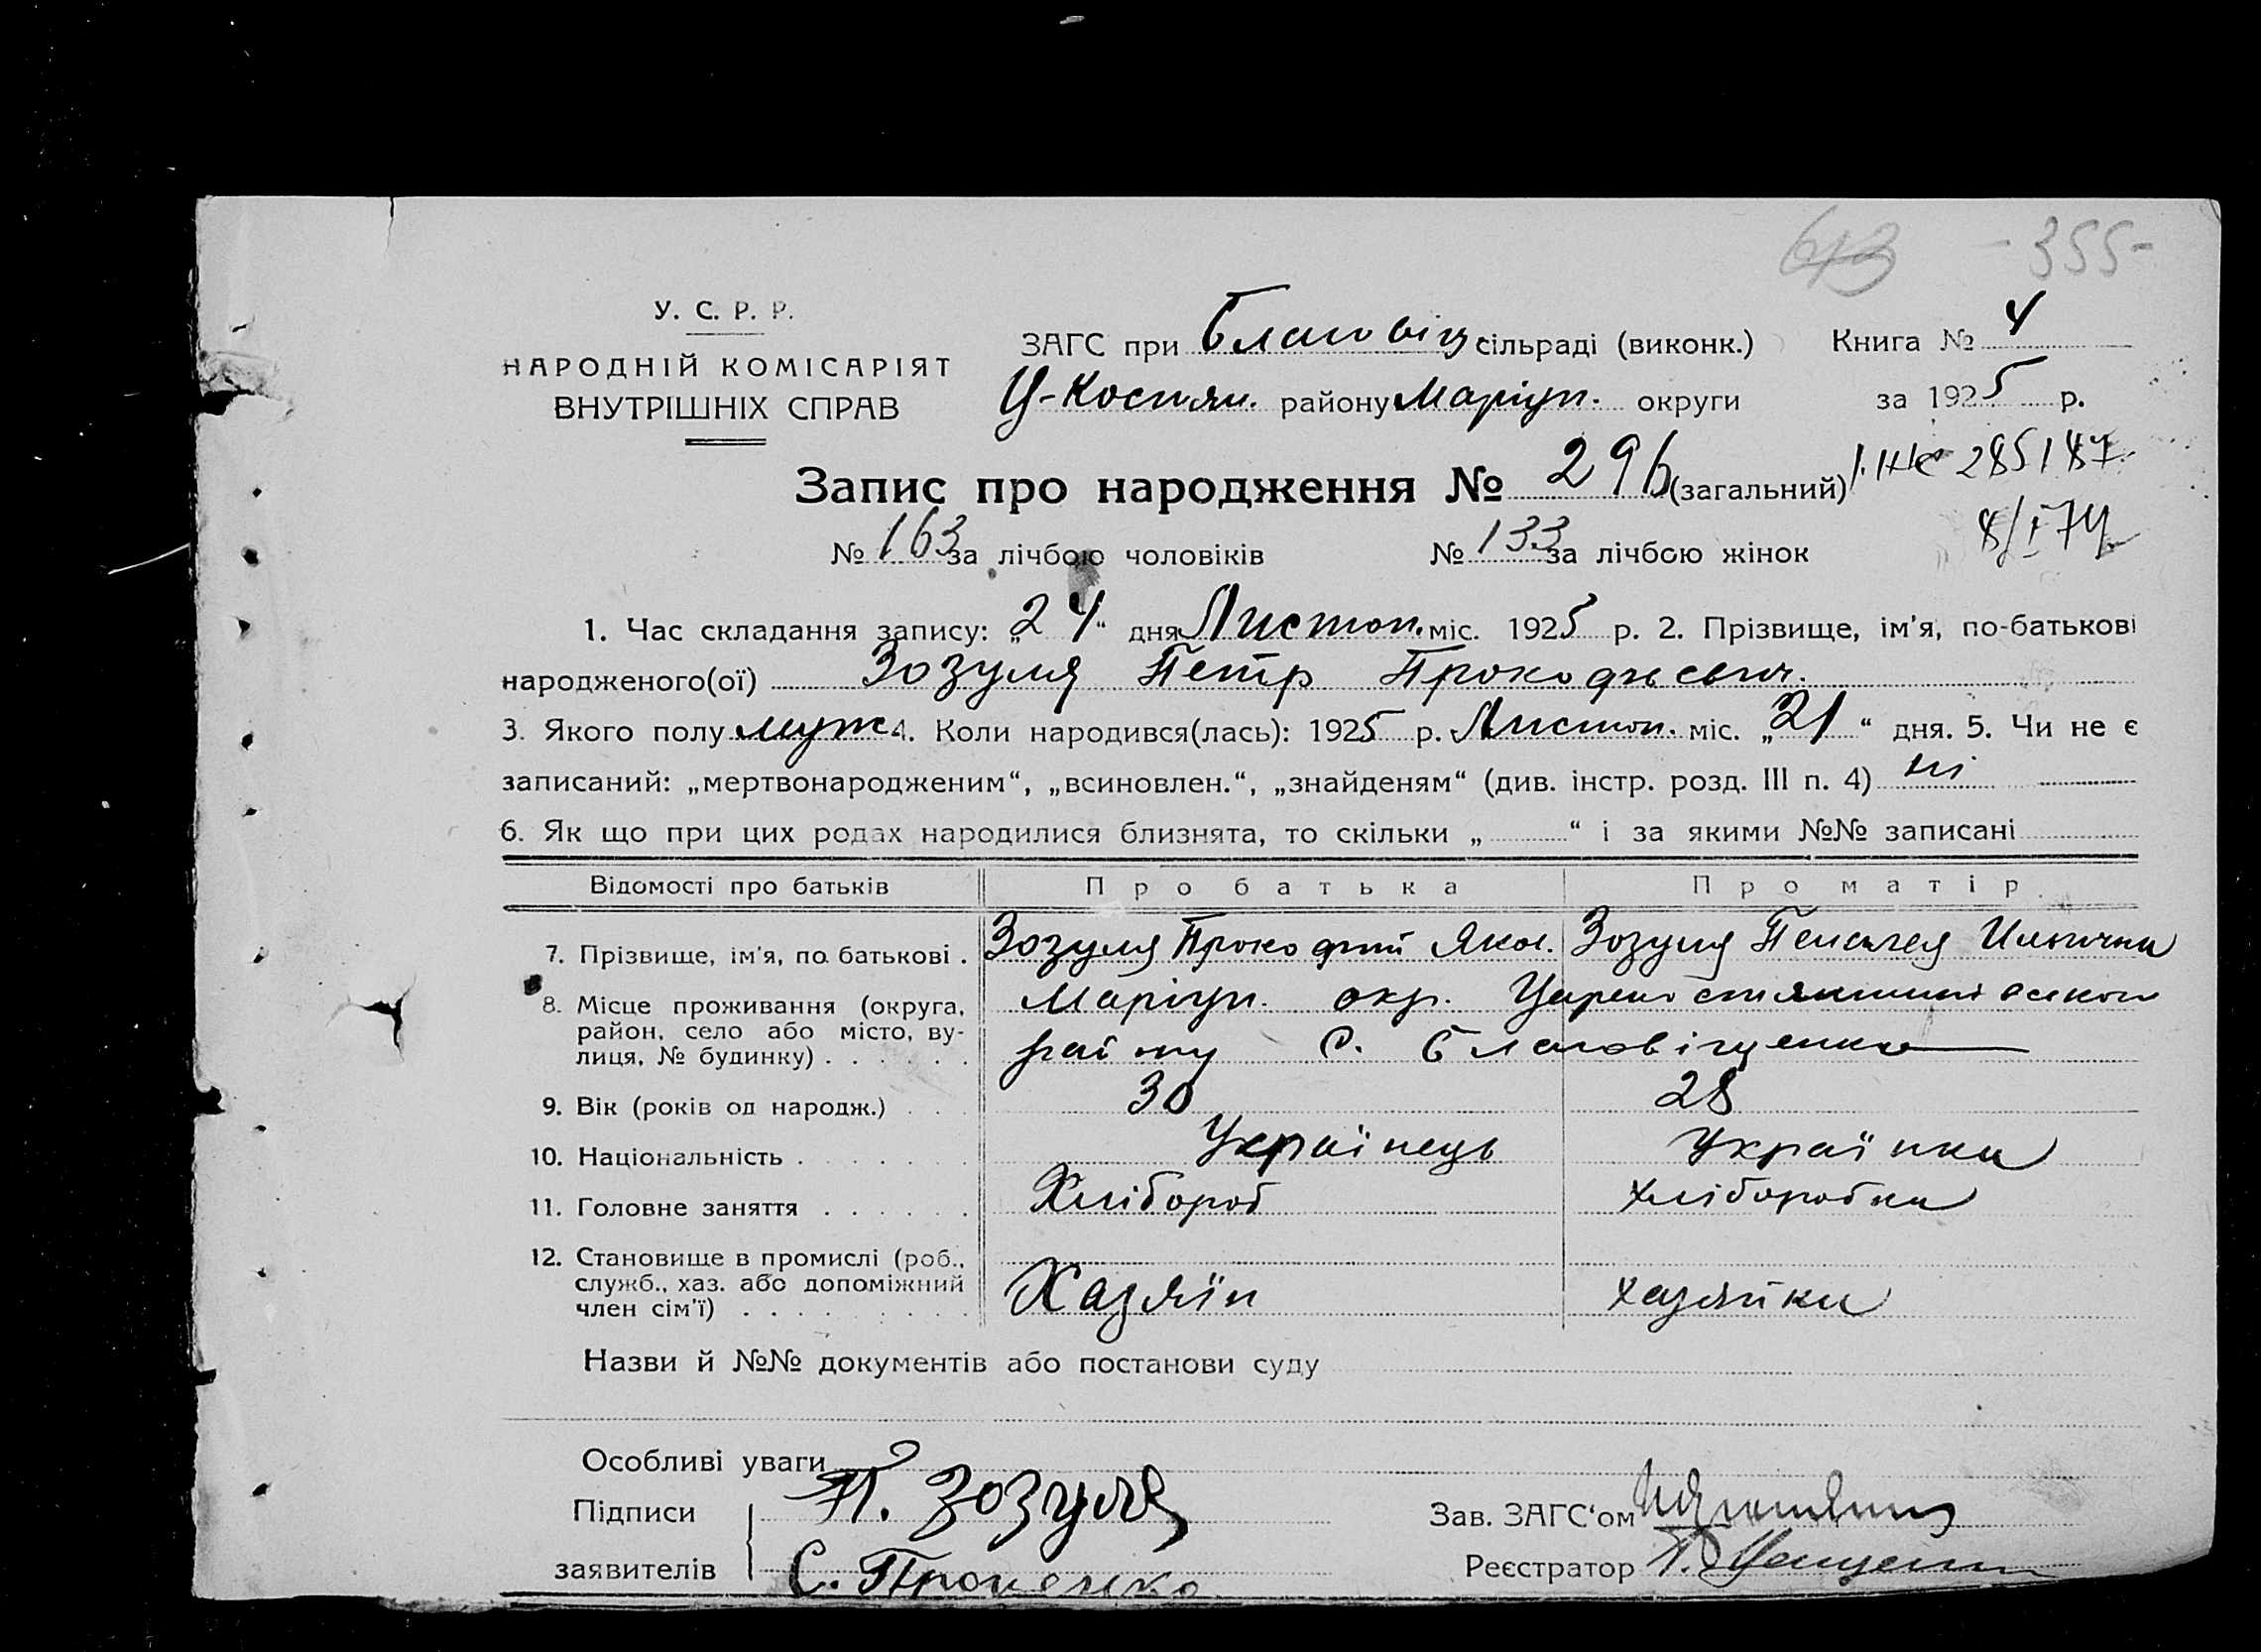 613 -355-
У. С. Р. Р.
НАРОДНІЙ КОМІСАРІЯТ
ВНУТРІШНІХ СПРАВ
ЗАГС при Благовіщ. сільраді (виконк.) Книга № 4
Ц-Костян. району Маріуп. округи за 1925 р.
Запис про народження № 296 (загальний) 285187
№ 163 за лічбою чоловіків № 133 за лічбою жінок 8/I 74
1. Час складання запису: „24“ дня Листоп. міс. 1925 р. 2. Прізвище, ім'я, по-батькові
народженого(ої) Зозуля Петр Прокофьевич.
3. Якого полу муж 4. Коли народився(лась): 1925 р. Листоп. міс. „21“ дня. 5. Чи не є
записаний: „мертвонародженим“, „всиновлен.“, „знайденям“ (див. інстр. розд. III п. 4) ні
6. Як що при цих родах народилися близнята, то скільки „ “ і за якими №№ записані
Відомості про батьків Про батька Про матір
7. Прізвище, ім'я, по батькові . Зозуля Прокофий Яков. Зозуля Пелагея Ильична
8. Місце проживання (округа, Маріуп. окр.
район, село або місто, ву-
лиця, № будинку) . . . . . району С. Благовіщенка
9. Вік (років од народж.) . . 30 28
10. Національність . . . . . . . Українець Українка
11. Головне заняття . . . . . . Хлібороб хліборобка
12. Становище в промислі (роб.,
служб., хаз. або допоміжний
член сім'ї) . . . . . . . . . Хазяїн хазяйка
Назви й №№ документів або постанови суду
Особливі уваги
Підписи П. Зозуля Зав. ЗАГС'ом
заявителів С. Реєстратор